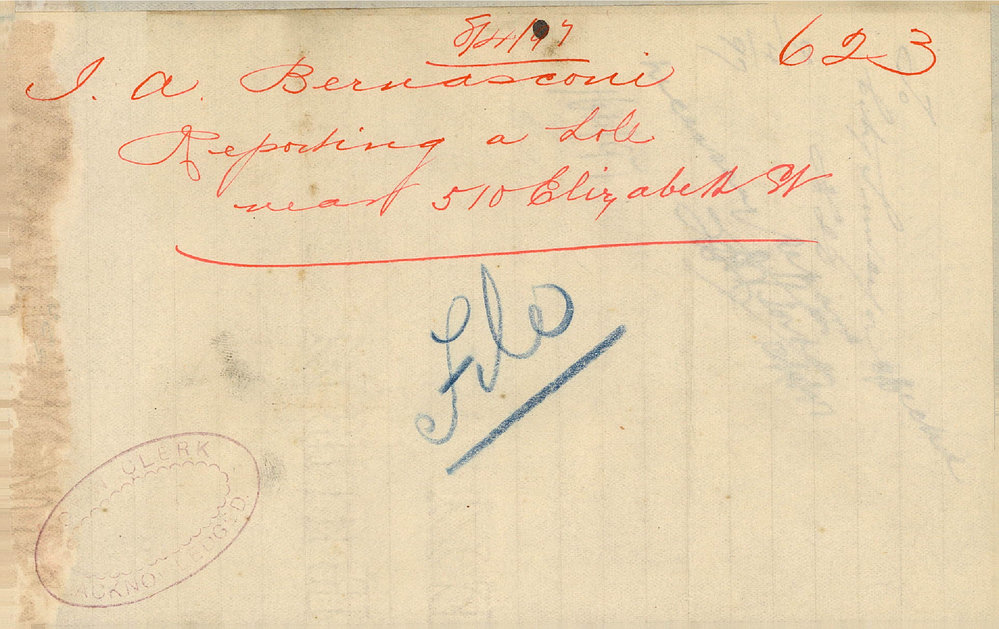 5/4/97
623
I. A. Bernasconi
Reporting a hole
near 510 Elizabeth St
File
CLERK
ACKNOWLEDGED.